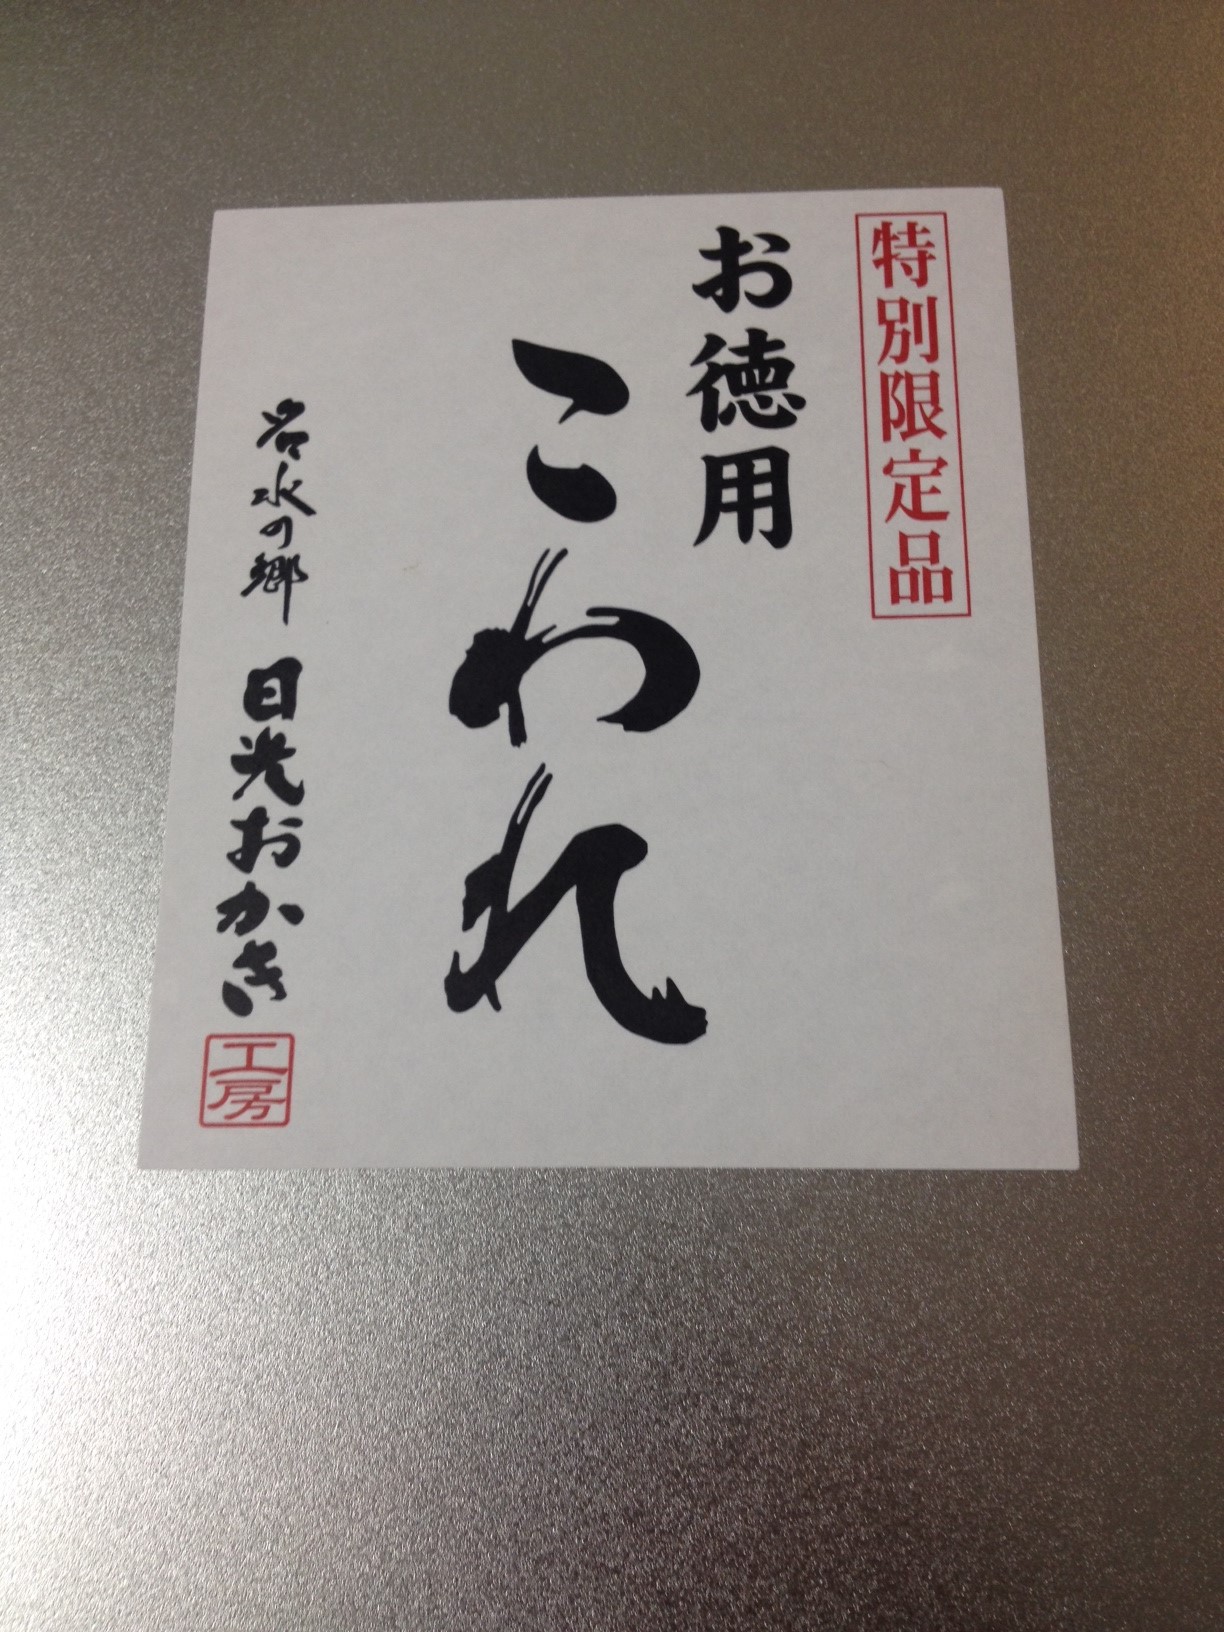 特別限定品
お徳用
こわれ
名水の郷 日光おかき
工房